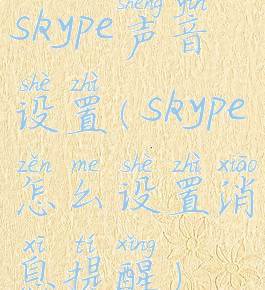 shēng yīn
skype声音
shè zhì
设置(skype
zěn me shè zhì xiāo
怎么设置消
xī tí xǐng
息提醒)